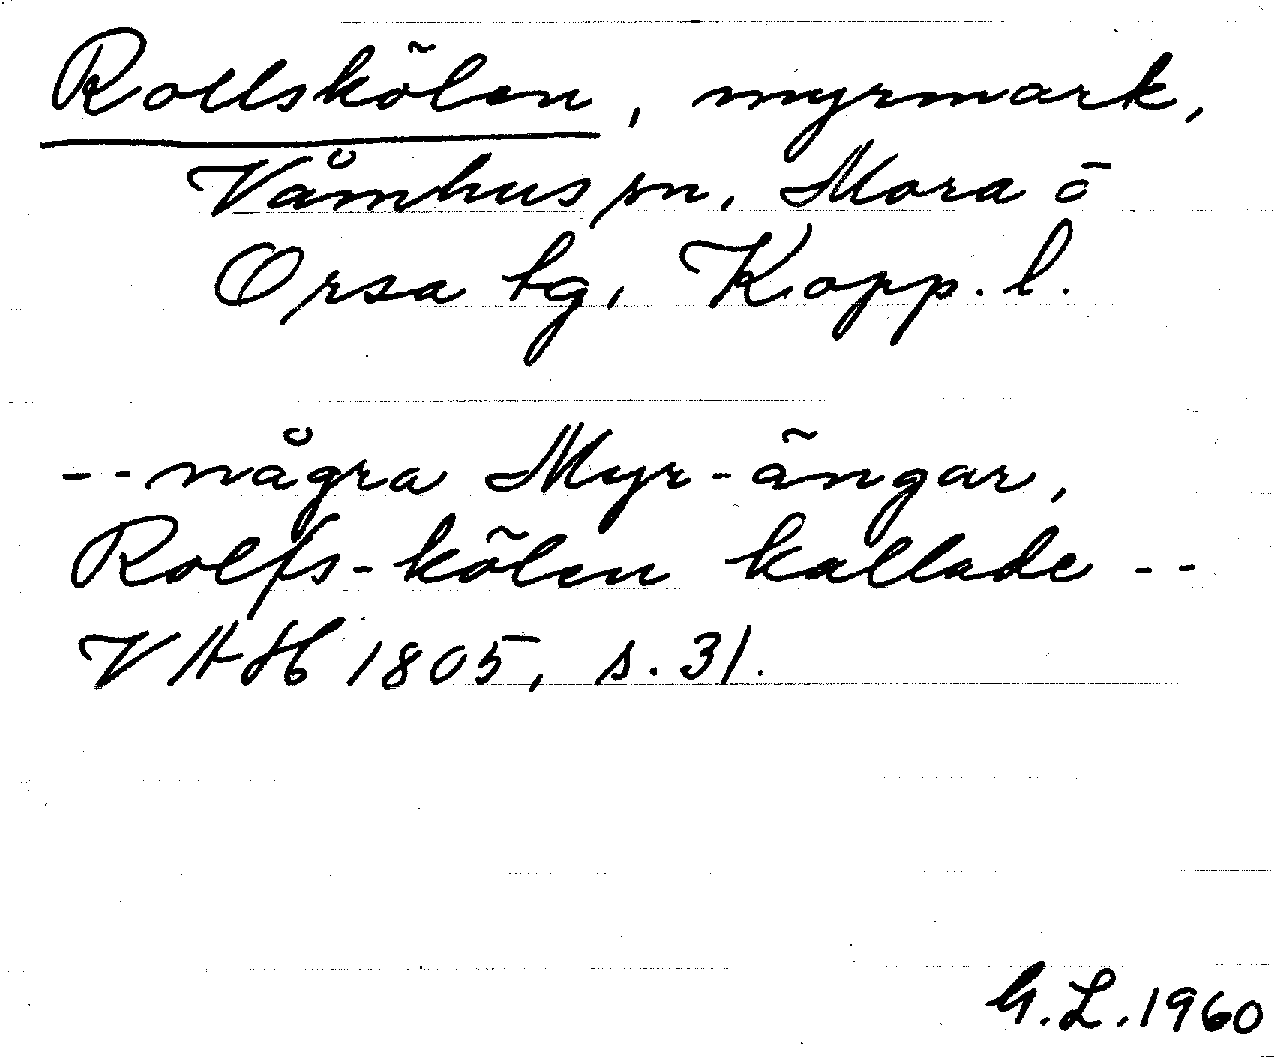 Rollskölen, myrmark,
Våmhus sn, Mora o
Orsa tg, Kopp. l.
--några Myr-ängar,
Rolfs-kölen kallade --
VAH 1805, s. 31.
G.L. 1960